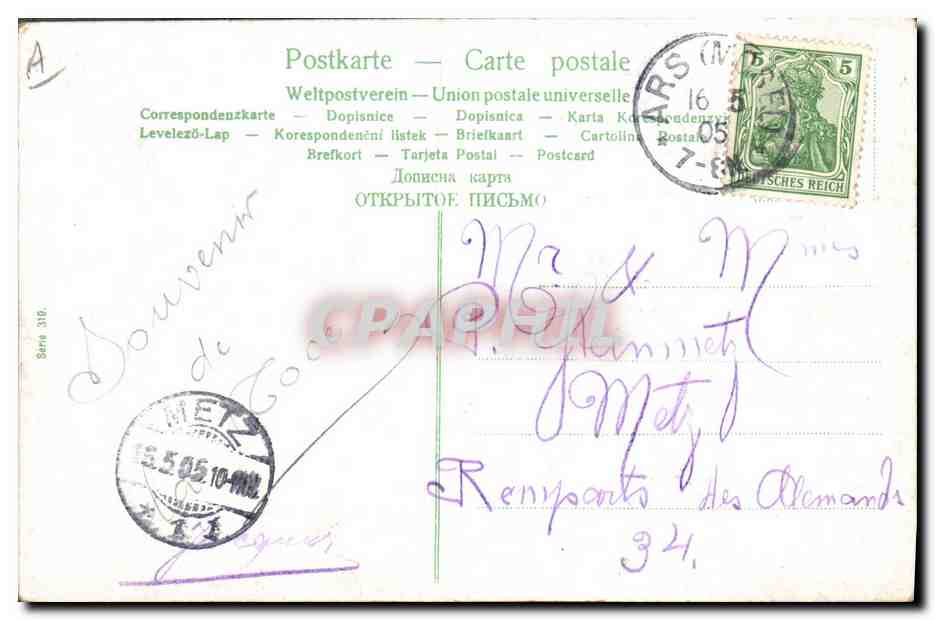 A
Postkarte — Carte postale
Weltpostverein — Union postale universelle
Correspondenzkarte — Dopisnice — Dopisnica — Karta Korespondenzyj
Levelező-Lap — Korespondenční lístek — Briefkaart — Cartolina Postale
Brefkort — Tarjeta Postal — Postcard
Дописна карта
ОТКРЫТОЕ ПИСЬМО
ARS (MOSEL)
16 5
05
* 7-8N *
5 5
DEUTSCHES REICH
Serie 310.
Souvenir
de
METZ
5.05.10-11N.
* 11
CPAPHIL
Mr & Mmes
Steinmetz
Metz
Remparts des Allemands
34.